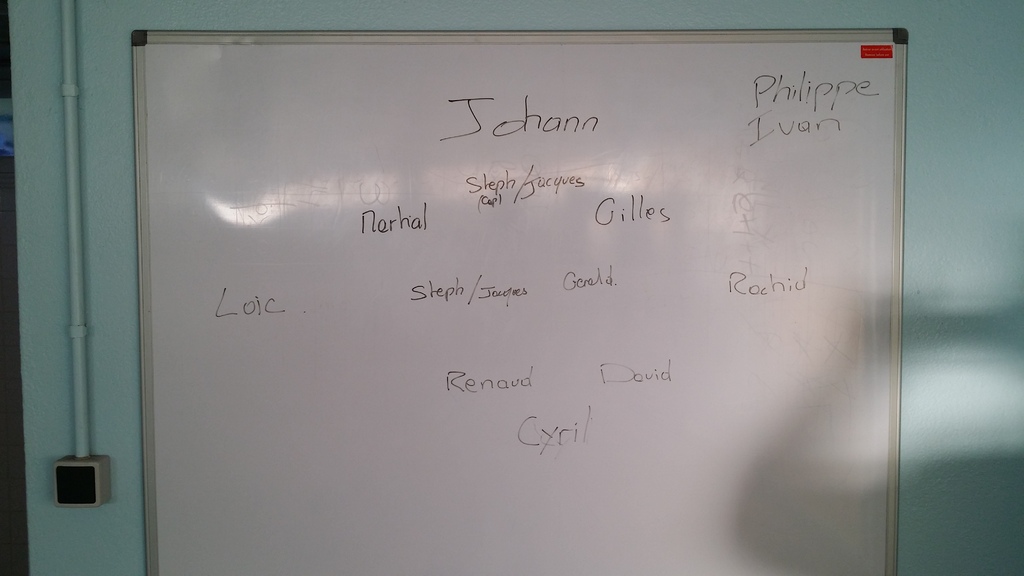 Philippe
Johann
Ivan
Steph/Jacques
(cap)
Martial
Gilles
Loic.
Steph/Jacques
Gerald.
Rachid
Renaud
David
Cyril